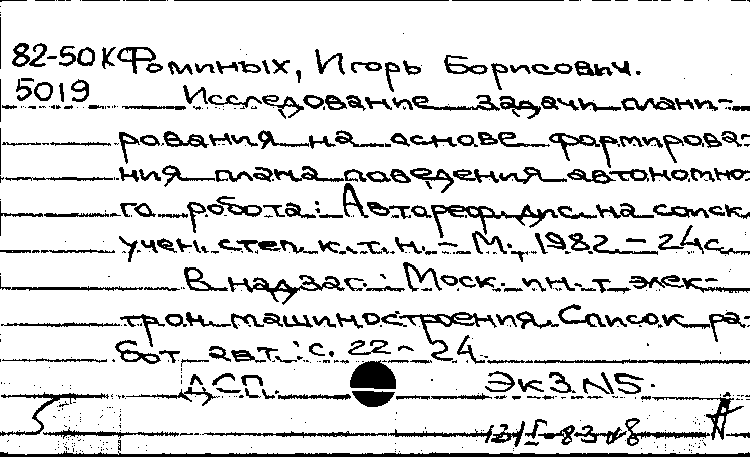 82-50К Фоминых, Игорь Борисович.
5019 Исследование задачи плани-
рования на основе формирова-
ния плана поведения автономно-
го робота: Автореф. дис. на соиск.
учен. степ. к.т.н. – М., 1982 – 24 с.
В надзаг.: Моск. ин. т элек-
трон. машиностроения. Список ра-
бот авт.: с. 22-24.
ДСП. Экз. N5.